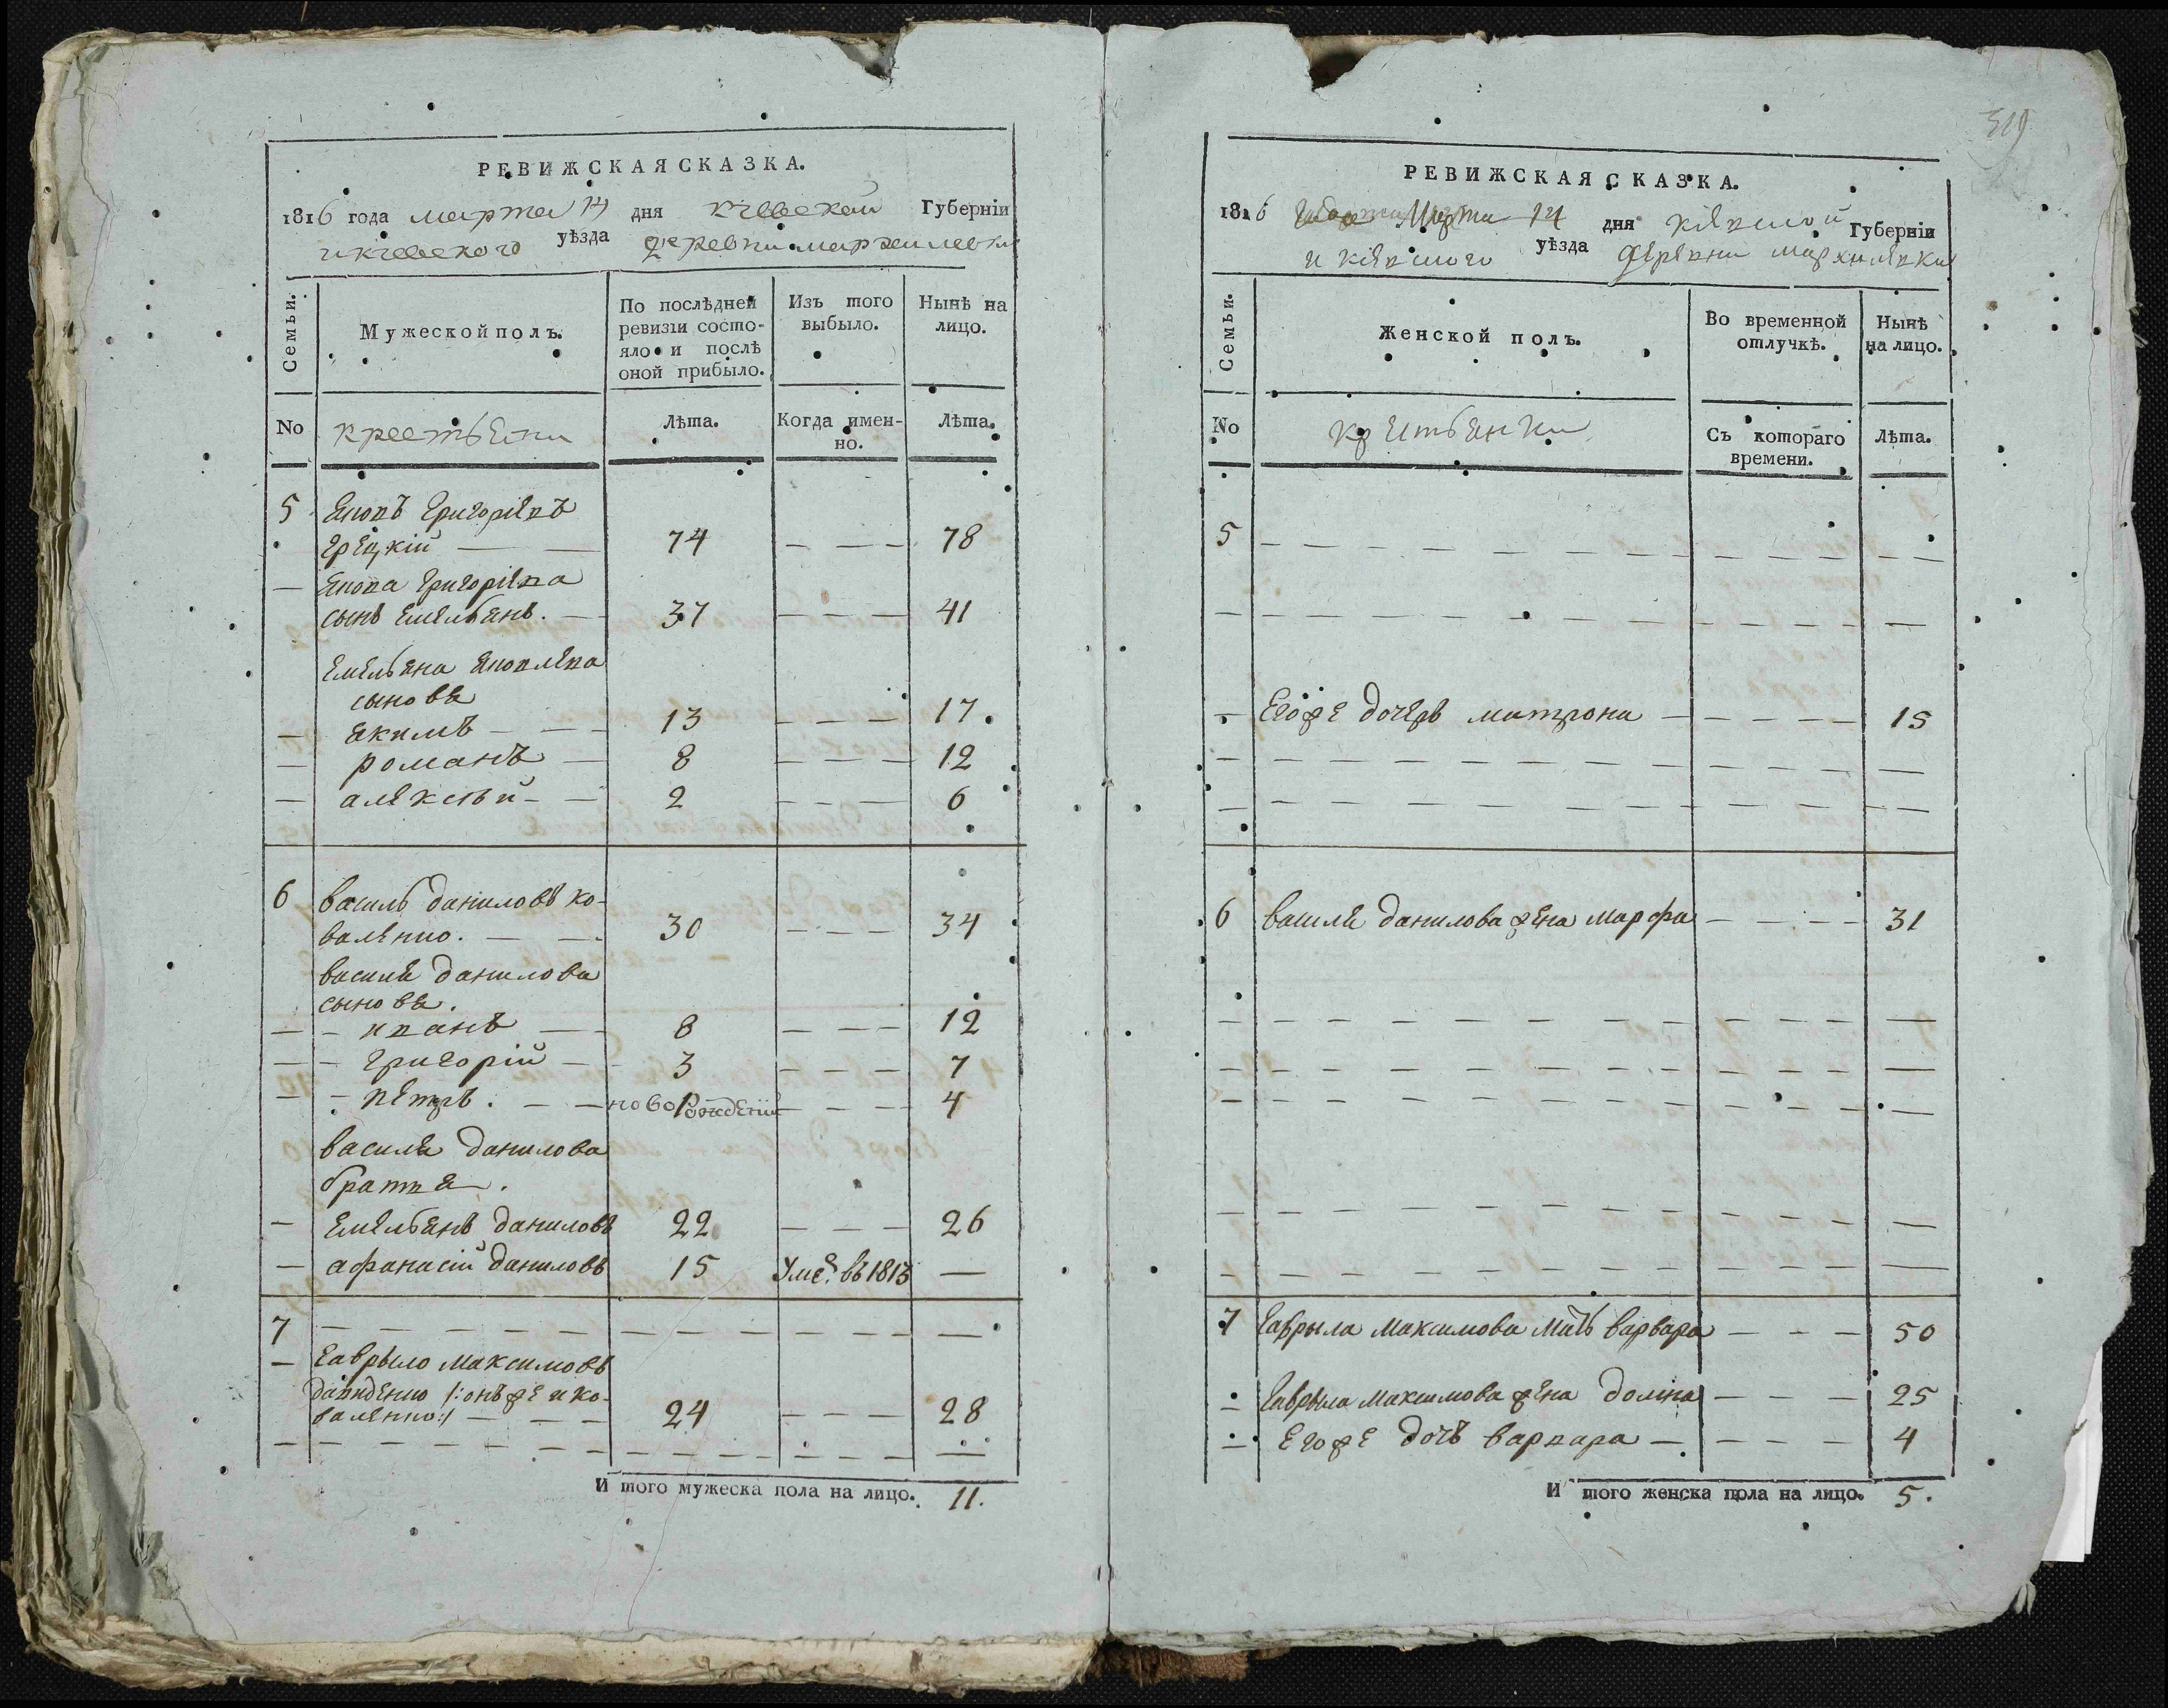 РЕВИЖСКАЯ СКАЗКА.
1816 года марта 14 дня кіевской Губерніи
и кіевского уѣзда деревни мархилевки
Семьи.
Мужеской полъ.
По послѣдней ревизіи состояло и послѣ оной прибыло.
Изъ того выбыло.
Нынѣ на лицо.
No
крестьяни
Лѣта.
Когда именно.
Лѣта.
5 Яковъ Григоріевъ
Грецкій — — 74 — — — 78
— Якова Григоріева
сынъ Емельянъ. — 37 — — — 41
Емельяна Яковлева
сыновя
— Якимъ — — — 13 — — — 17.
— романъ — 8 — — — 12
— алексѣй — — 2 — — — 6
6 василь даниловъ ко-
валенко. — — 30 — — — 34
василя данилова
сыновя.
— — иванъ — — 8 — — — 12
— — григорій — 3 — — — 7
— — петръ. — — новорожденій — — — 4
василя данилова
братья.
— Емельянъ даниловъ 22 — — — 26
— афанасій даниловъ 15 Умеръ въ 1813 —
7 — — — — — — — — — — — —
— Гаврыло максимовъ
давиденко /: онъ же и ко-
валенко :/ — — — 24 — — — 28
— — — — — — — — — — — —
И того мужеска пола на лицо. 11.
319
РЕВИЖСКАЯ СКАЗКА.
1816 Марта 14 дня кіевской Губерніи
и кіевского уѣзда деревни мархилевки
Семьи.
Женской полъ.
Во временной отлучкѣ.
Нынѣ на лицо.
No
крестьянки
Съ котораго времени.
Лѣта.
5 — — — — — — — — — — — —
— — — — — — — — — — — —
— Его же дочерь матрона — — — — — 15
— — — — — — — — — — — —
— — — — — — — — — — — —
6 василя данилова жена марфа — — — — 31
— — — — — — — — — — — —
— — — — — — — — — — — —
— — — — — — — — — — — —
— — — — — — — — — — — —
— — — — — — — — — — — —
7 Гаврыла максимова мать варвара — — — 50
— Гаврыла максимова жена — — — 25
— Его же дочь варвара — — — — 4
И того женска пола на лицо. 5.